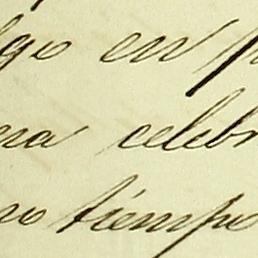 lgo en p
era celebr
ro tiempo